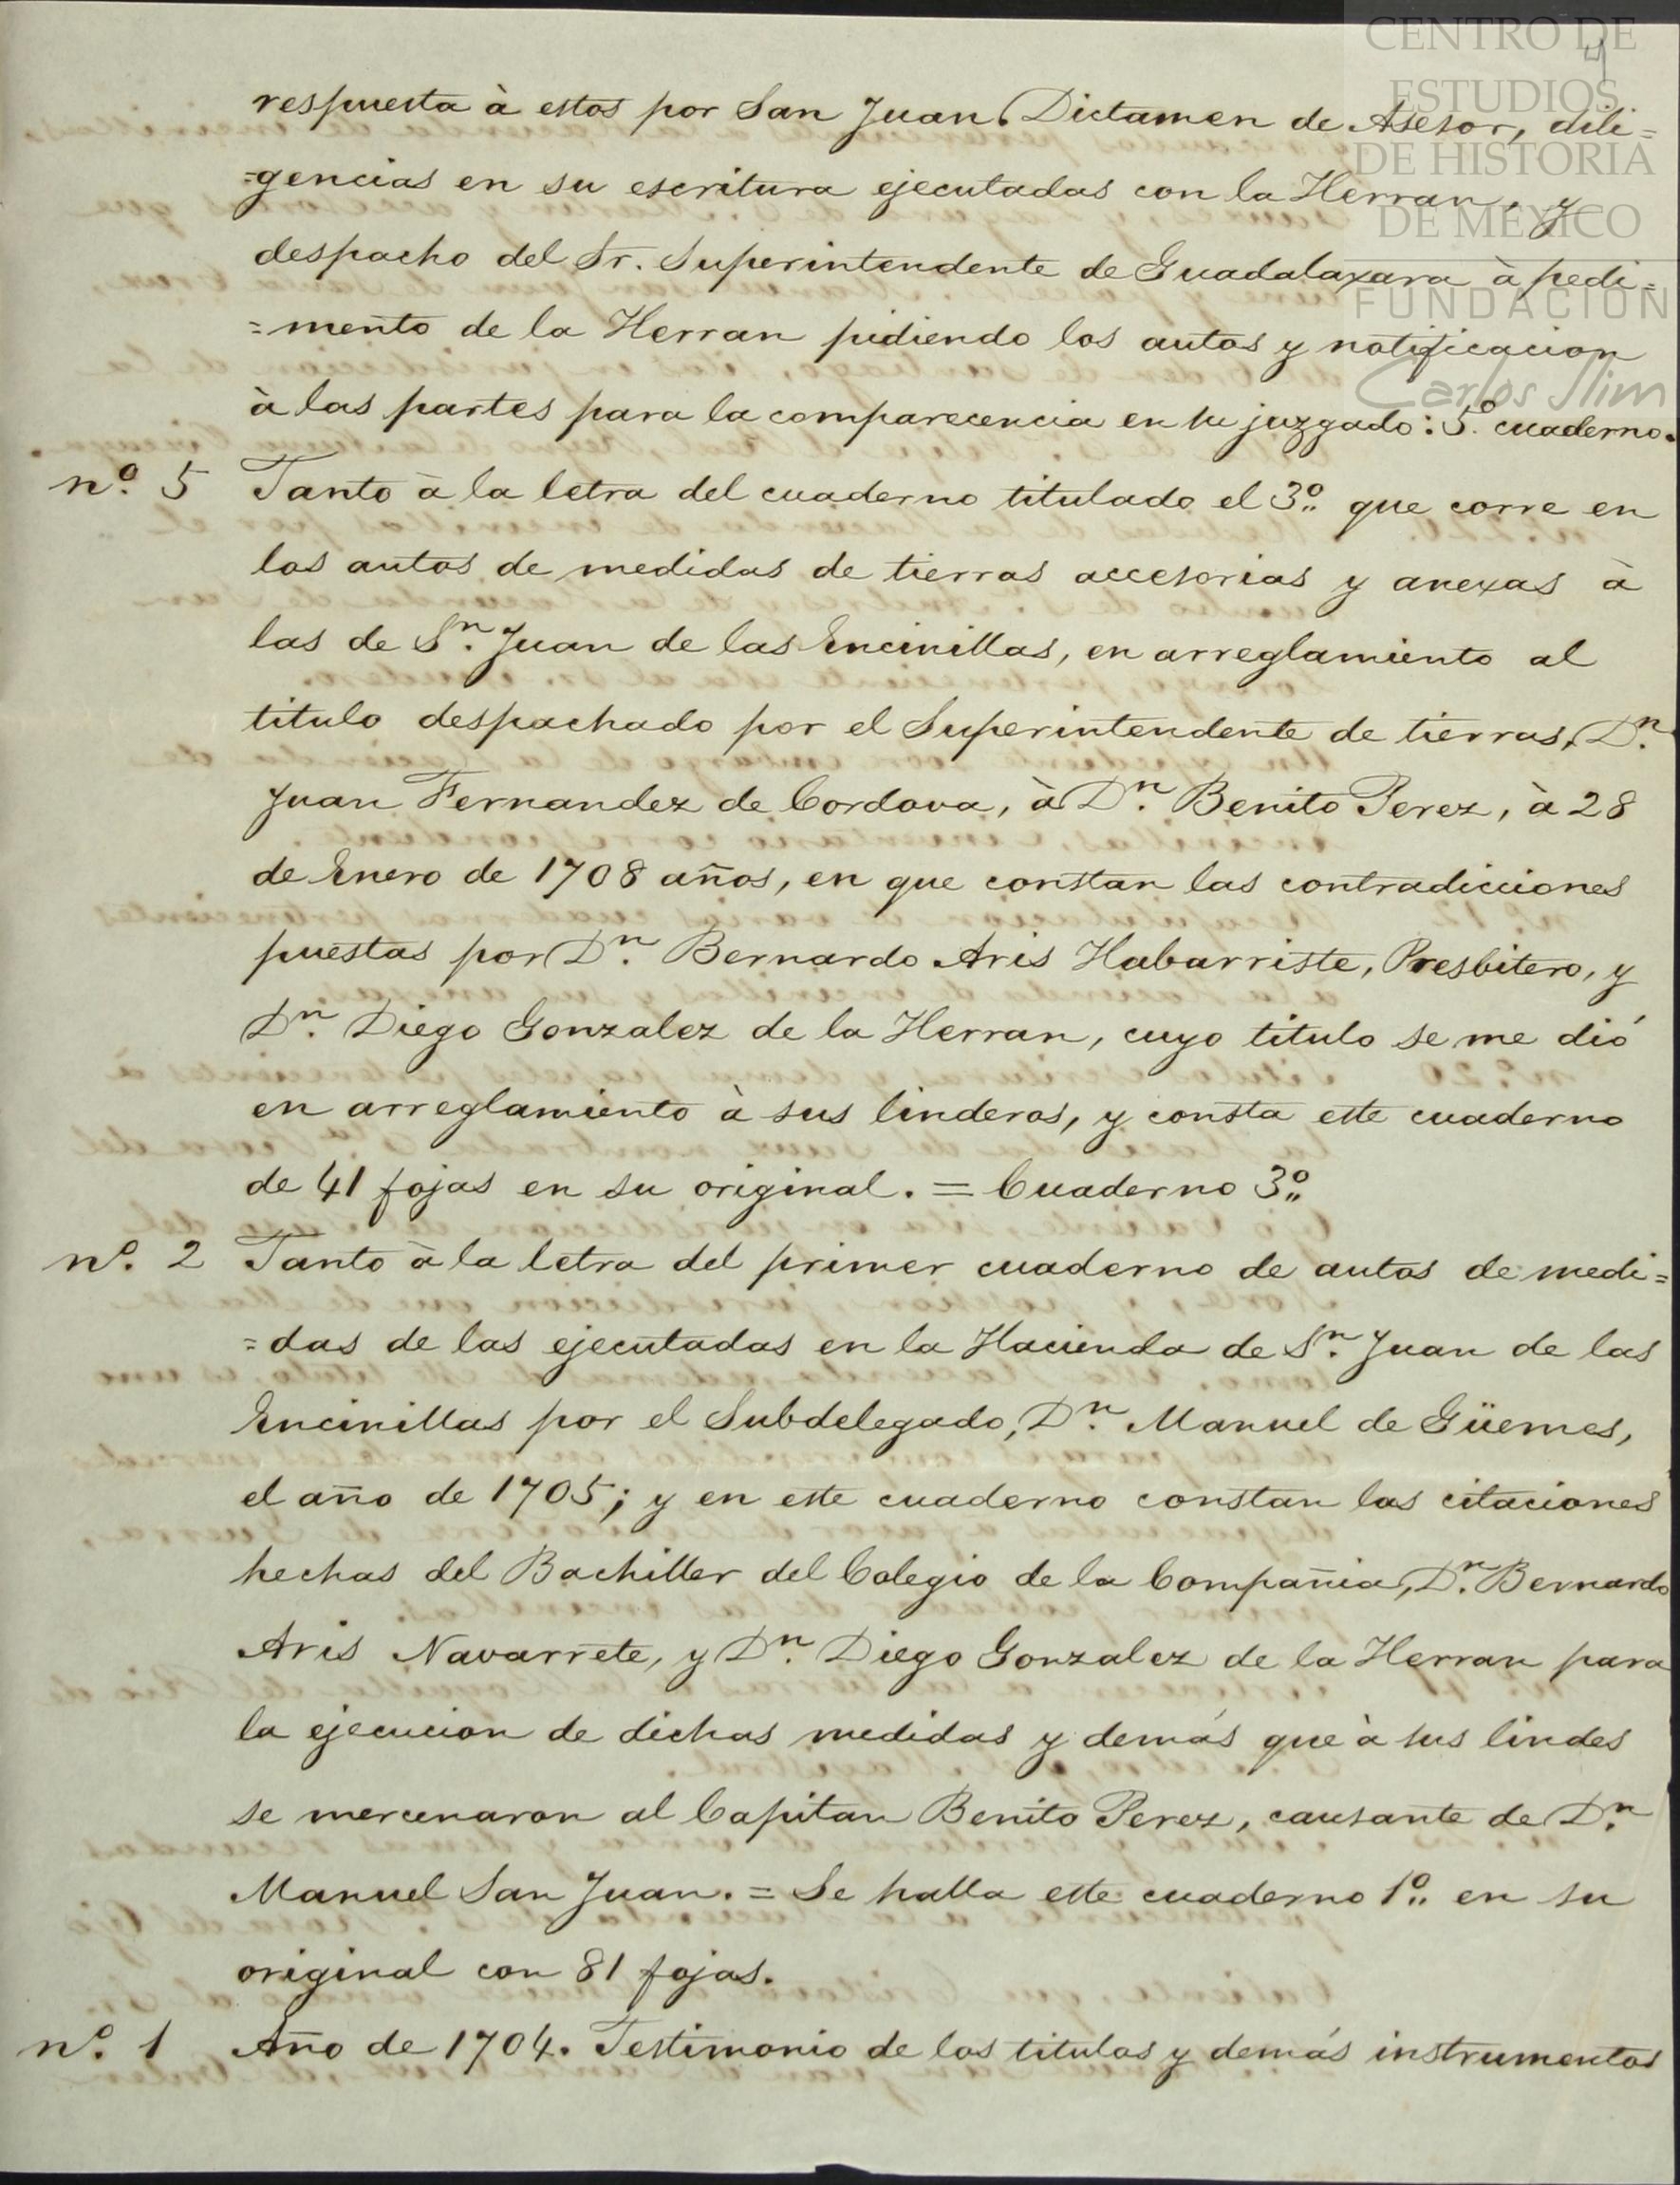 CENTRO DE
ESTUDIOS
DE HISTORIA
DE MÉXICO
FUNDACIÓN
Carlos Slim
4
respuesta à estos por San Juan. Dictamen de Asesor, dili=
=gencias en su escritura ejecutadas con la Herran, y
despacho del Sr. Superintendente de Guadalaxara à pedi=
=mento de la Herran pidiendo los autos y notificacion
à las partes para la comparecencia en su juzgado: 5º cuaderno.
nº. 5 Tanto à la letra del cuaderno titulado el 3º que corre en
los autos de medidas de tierras accesorias y anexas à
las de Sn. Juan de las Encinillas, en arreglamiento al
titulo despachado por el Superintendente de tierras, Dn.
Juan Fernandez de Cordova, à Dn. Benito Perez, à 28
de Enero de 1708 años, en que constan las contradicciones
puestas por Dn. Bernardo Aris Habarriste, Presbitero, y
Dn. Diego Gonzalez de la Herran, cuyo titulo se me dió
en arreglamiento à sus linderos, y consta este cuaderno
de 41 fojas en su original. = Cuaderno 3º
nº. 2 Tanto à la letra del primer cuaderno de autos de medi=
=das de las ejecutadas en la Hacienda de Sn. Juan de las
Encinillas por el Subdelegado, Dn. Manuel de Güemes,
el año de 1705; y en este cuaderno constan las citaciones
hechas del Bachiller del Colegio de la Compañia, Dn. Bernardo
Aris Navarrete, y Dn. Diego Gonzalez de la Herran para
la ejecucion de dichas medidas y demás que à sus lindes
se mercenaron al Capitan Benito Perez, causante de Dn.
Manuel San Juan. = Se halla este cuaderno 1º en su
original con 81 fojas.
nº. 1 Año de 1704. Testimonio de los titulos y demás instrumentos